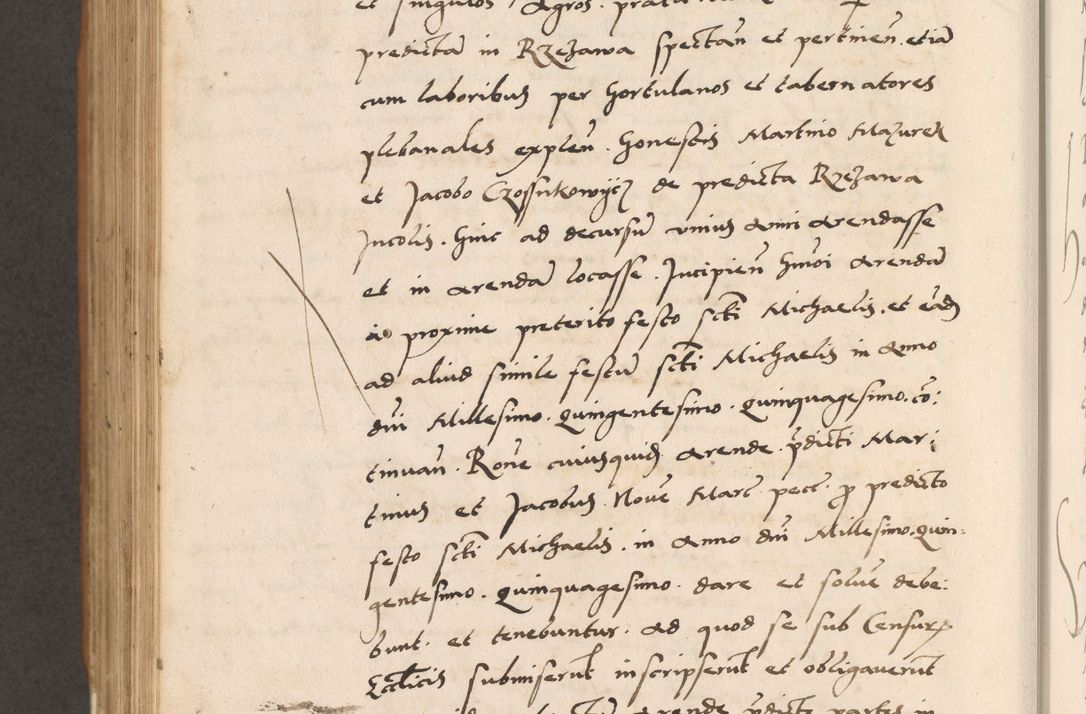 et singulos Agros. prata
predictā in Rzezawa spectan̄ et pertinen̄. etiā
cum laboribus per hortulanos et tabernatores
plebanales explen̄. honestis Martino Mazurek
et Jacobo Czossnkowijcz de predicta Rzezawa
Incolis. hinc ad decursū vnius anni arendasse
et in arendā locasse. Incipien̄ hmōi arendā
a proxime preterito festo scti Michaelis. et eād
ad aliud simile festū scti Michaelis in anno
dnī Millesimo. quingentesimo. quinquagesimo. cō:
tinuan̄. Rone cuiusquid arende. p̄dicti Mar:
tinus et Jacobus. Nouē Marc. pect. p̱ predicto
festo scti Michaelis. in anno dnī Millesimo. quin:
gentesimo. quinquagesimo. dare et soluē debe:
bunt. et tenebuntur. ad quod se sub Censurꝝ
Eccticis submiserūt inscripserūt et obligauerūt
arende p̄dicte partes in